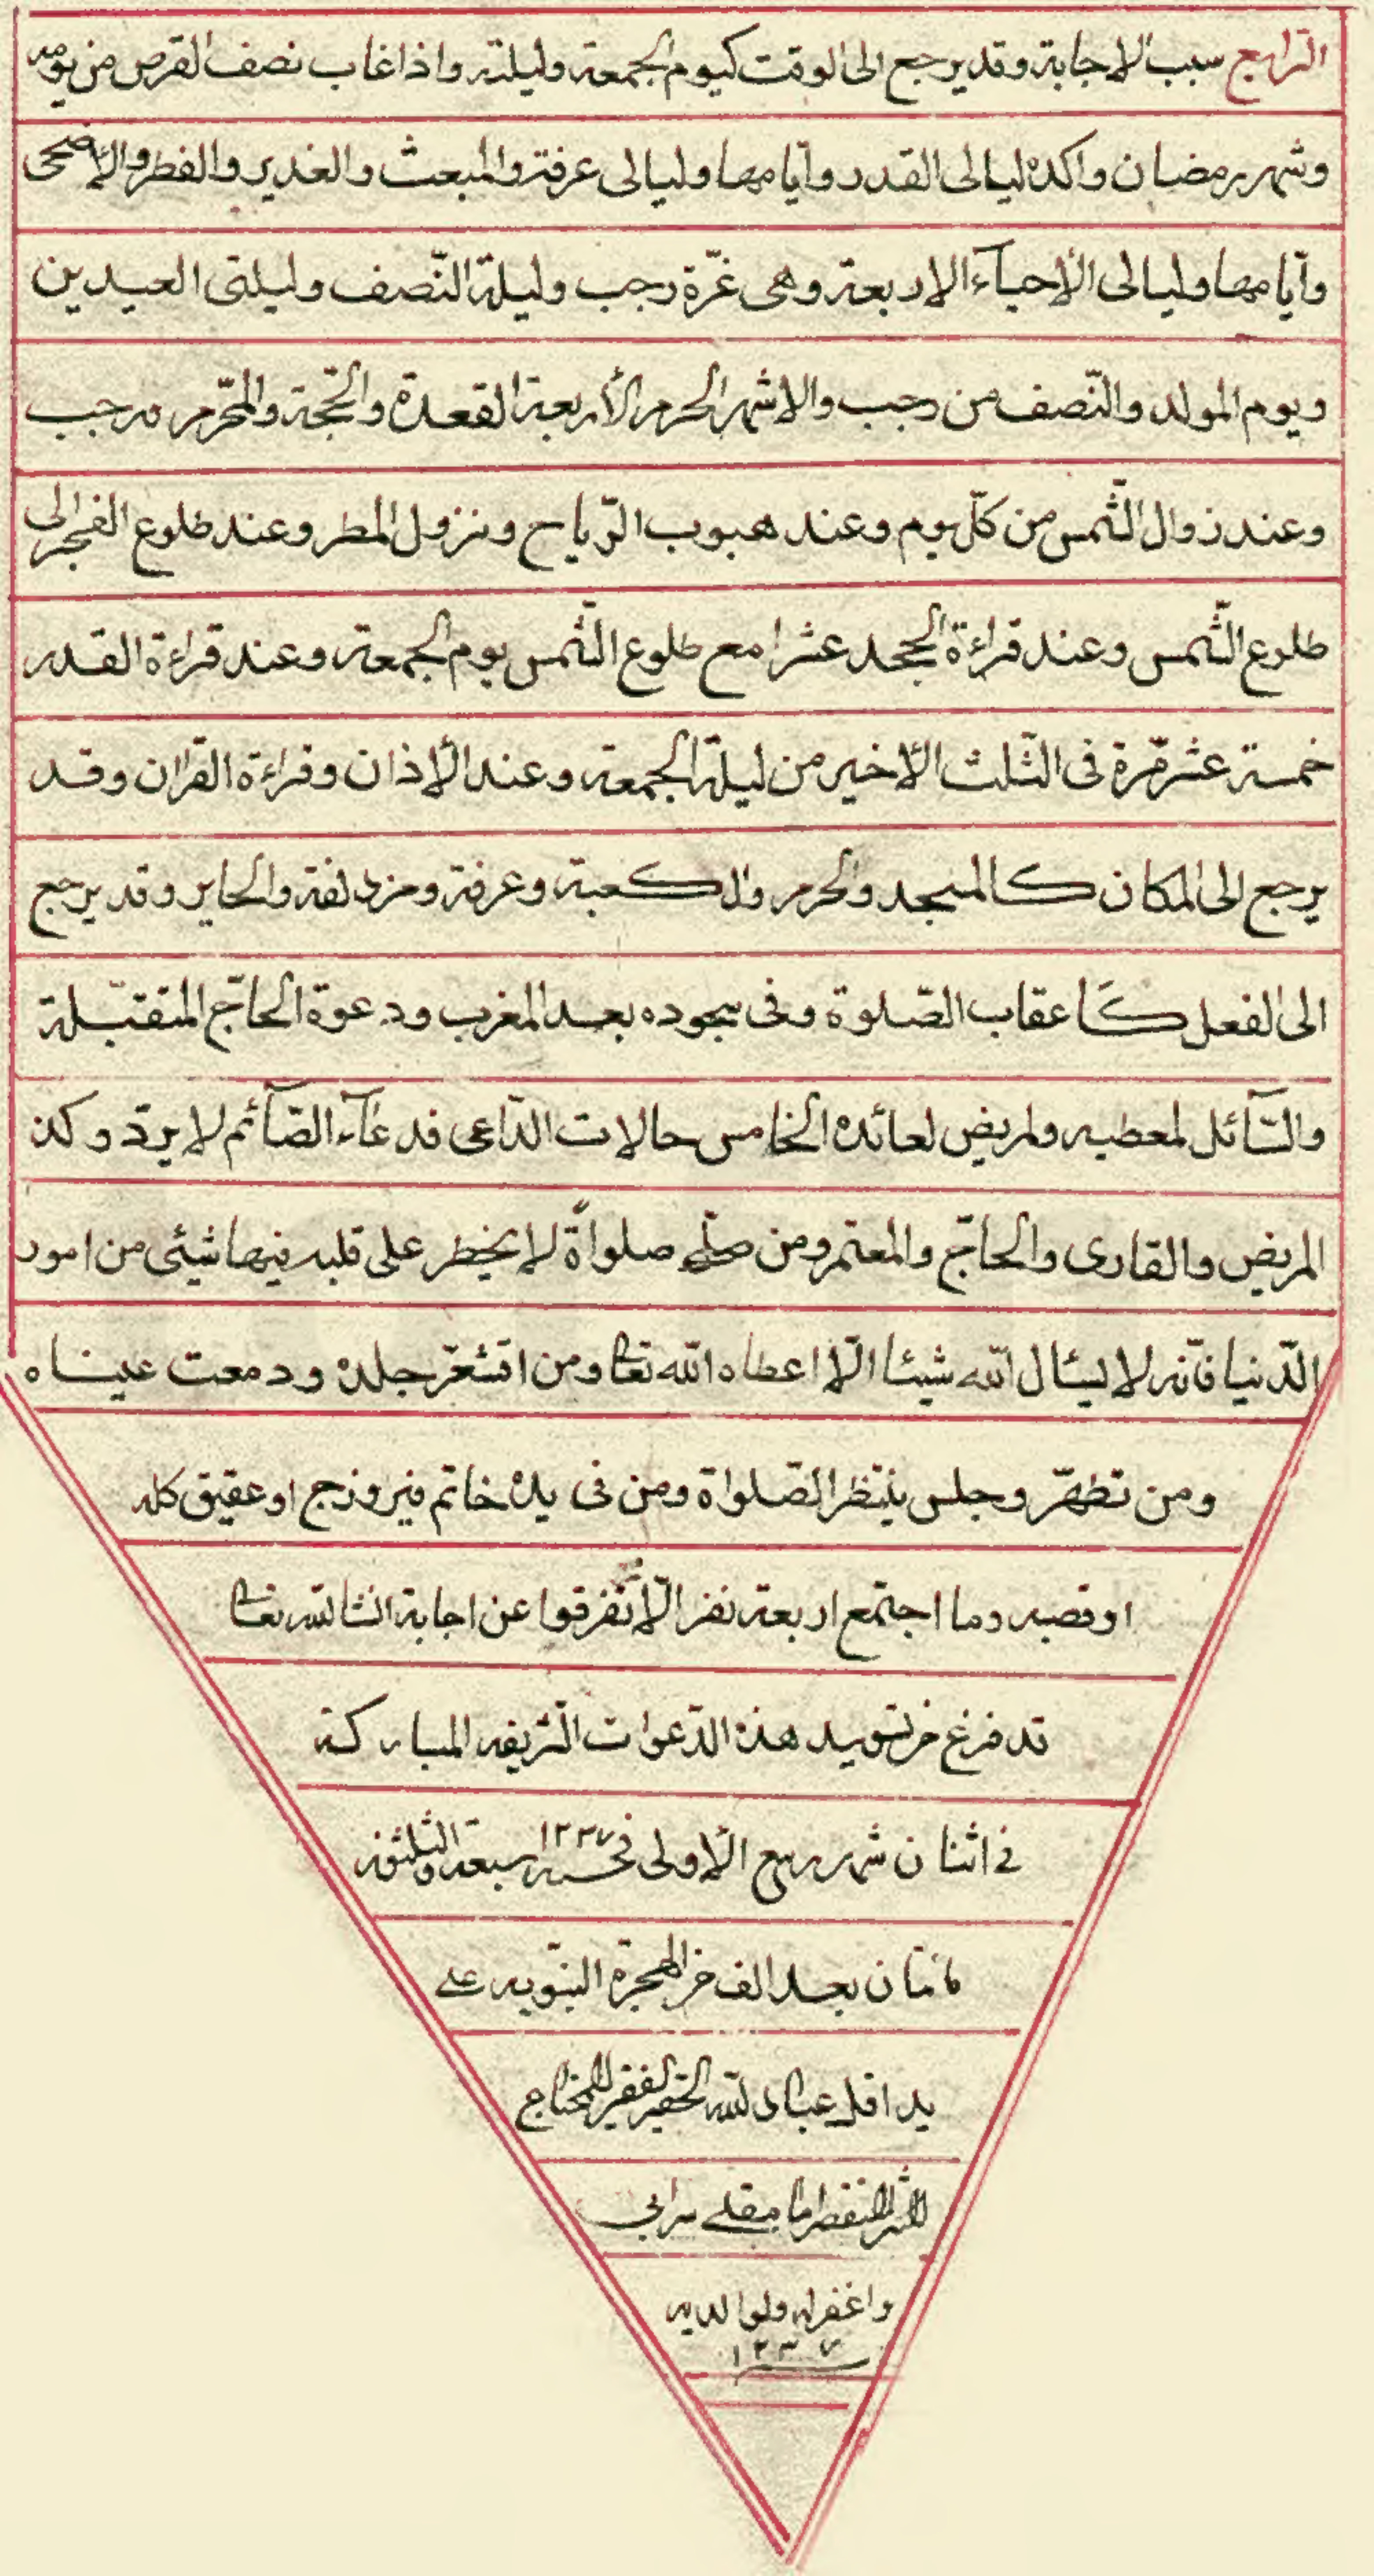 الرابع سبب الاجابة وقد يرجع الى الوقت كيوم الجمعة وليلته واذا غاب نصف القرص من يومه
وشهر رمضان واكده ليالى القدر وأيامها وليالى عرفة والمبعث والغدير والفطر والأضحى
وأيامها وليالى الأحياء الاربعة وهى غرّة رجب وليلة النّصف وليلتى العيدين
ويوم المولد والنّصف من رجب والاشهر الحرم الأربعة القعدة والحّجة والمحّرم ورجب
وعند زوال الشّمس من كلّ يوم وعند هبوب الرّياح ونزول المطر وعند طلوع الفجر الى
طلوع الشّمس وعند قراءة الجحد عشرا مع طلوع الشّمس يوم الجمعة وعند قراءة القدر
خمسة عشر مّرة فى الثّلث الأخير من ليلة الجمعة وعند الأذان وقراءة القران وقد
يرجع الى المكان كالمسجد والحرم والكعبة وعرفة ومزدلفة والحاير وقد يرجع
الى الفعل كَاعقاب الصّلوة وفى سجوده بعد المغرب ودعوة الحاّج المتقبّلة
والسّآئل لمعطيه ولمريض لعائده الخامس حالات الدّاعى فدعآء الصّآئم لا يردّ وكذ
المريض والقارى والحاّج والمعتمر ومن صلّى صلواةً لا يخطر على قلبه فيها شيئى من امور
الدّنيا فأنّه لا يسئال الله شيئا الّا اعطاه الله تعا ومن اقشعّر جلده ودمعت عيناه
ومن تطهّر وجلس ينتظر الصّلواة ومن فى يده خاتم فيروزج او عقيق كله
او فصه وما اجتمع اربعة نفر الّا تفرقوا عن اجابة انشاالله تعا
قد فرغ من تسويد هذه الدّعوات الشّريفه المباركة
فى اثنان شهر ربيع الاولى فى سنه ١٢٣٧ سبعه والثلثون
مأتان بعد الف من الهجرة النّبويه على
يد اقل عباد الله الحقير الفقير المحتاج
واغفر له ولوالديه
١٢٣٧